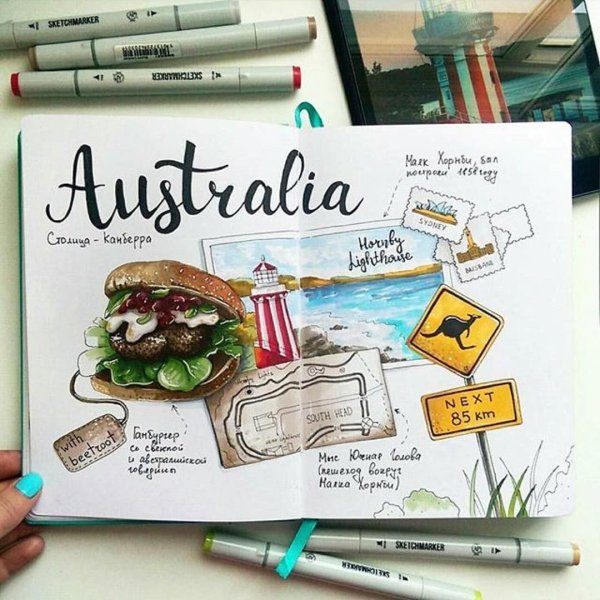 SKETCHMARKER
SKETCHMARKER
SKETCHMARKER
Australia
Столица - Канберра
Маяк Хорнби, был
построен 1858 году
SYDNEY
BRISBANE
Hornby
Lighthouse
NEXT
85 km
SOUTH HEAD
with
beetroot
Гамбургер
со свежей
и австралийской
говядины
Мыс Южная Голова
(пешеход вокруг
Маяка Хорнби)
SKETCHMARKER
SKETCHMARKER